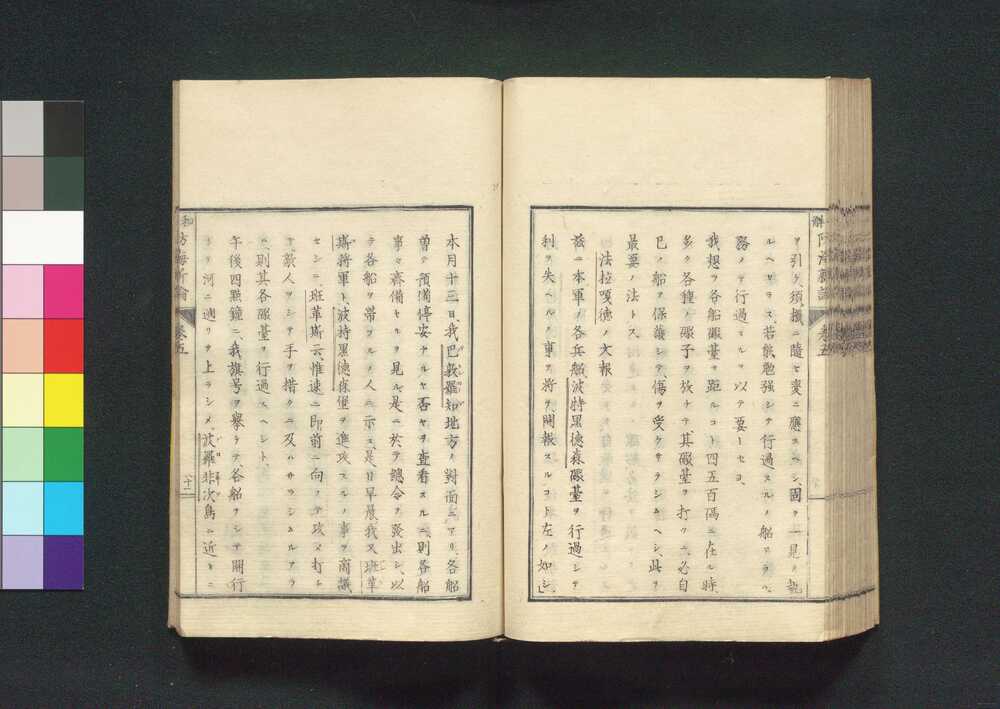 ヲ引ク、須ク機ニ隨ヒ變ニ應スヘシ、固ク一見ヲ執
ルヘカラス、若シ能勉強シテ行過スルノ船アラハ、
務メテ行過セルヲ以テ要トセヨ、
我想フ各船礮臺ヲ距ルコト四五百碼ニ在ル時、
多ク各種ノ礮子ヲ放チテ、其礮臺ヲ打クニ、必自
已ノ船ヲ保護シテ、傷ヲ受クサラシムヘシ、此ヲ
最要ノ法トス、
法拉嘎徳ノ文報
茲ニ本軍ノ各兵船、波特黒德森礮臺ヲ行過シテ
利ヲ失ヘルノ事ヲ將テ、開報スルコト左ノ如シ、
本月十三日、我巴敦羅知地方ノ對面ニアリ、各船
曽テ預備停妥ナルヤ否ヤヲ査看スルニ、則各船
事々齊備セルヲ見ル、是ニ於テ總令ヲ發出シ、以
テ各船ヲ帶フルノ人ニ示ス、是日早晨我又班革
斯將軍ト、波特黒德森堡ヲ進攻スルノ事ヲ商議
セシニ、班革斯云、惟速ニ即前ニ向ツテ攻メ打シ
テ、敵人ヲシテ手ヲ措クニ及ハサラシムルアラ
ハ、則其各礮臺ヲ行過スヘシト、
午後四點鐘ニ、我旗号ヲ擧ケテ各船ヲシテ開行
河ニ遡リテ上ラシメ、波羅非次島ニ近キニ
卷五
卷五